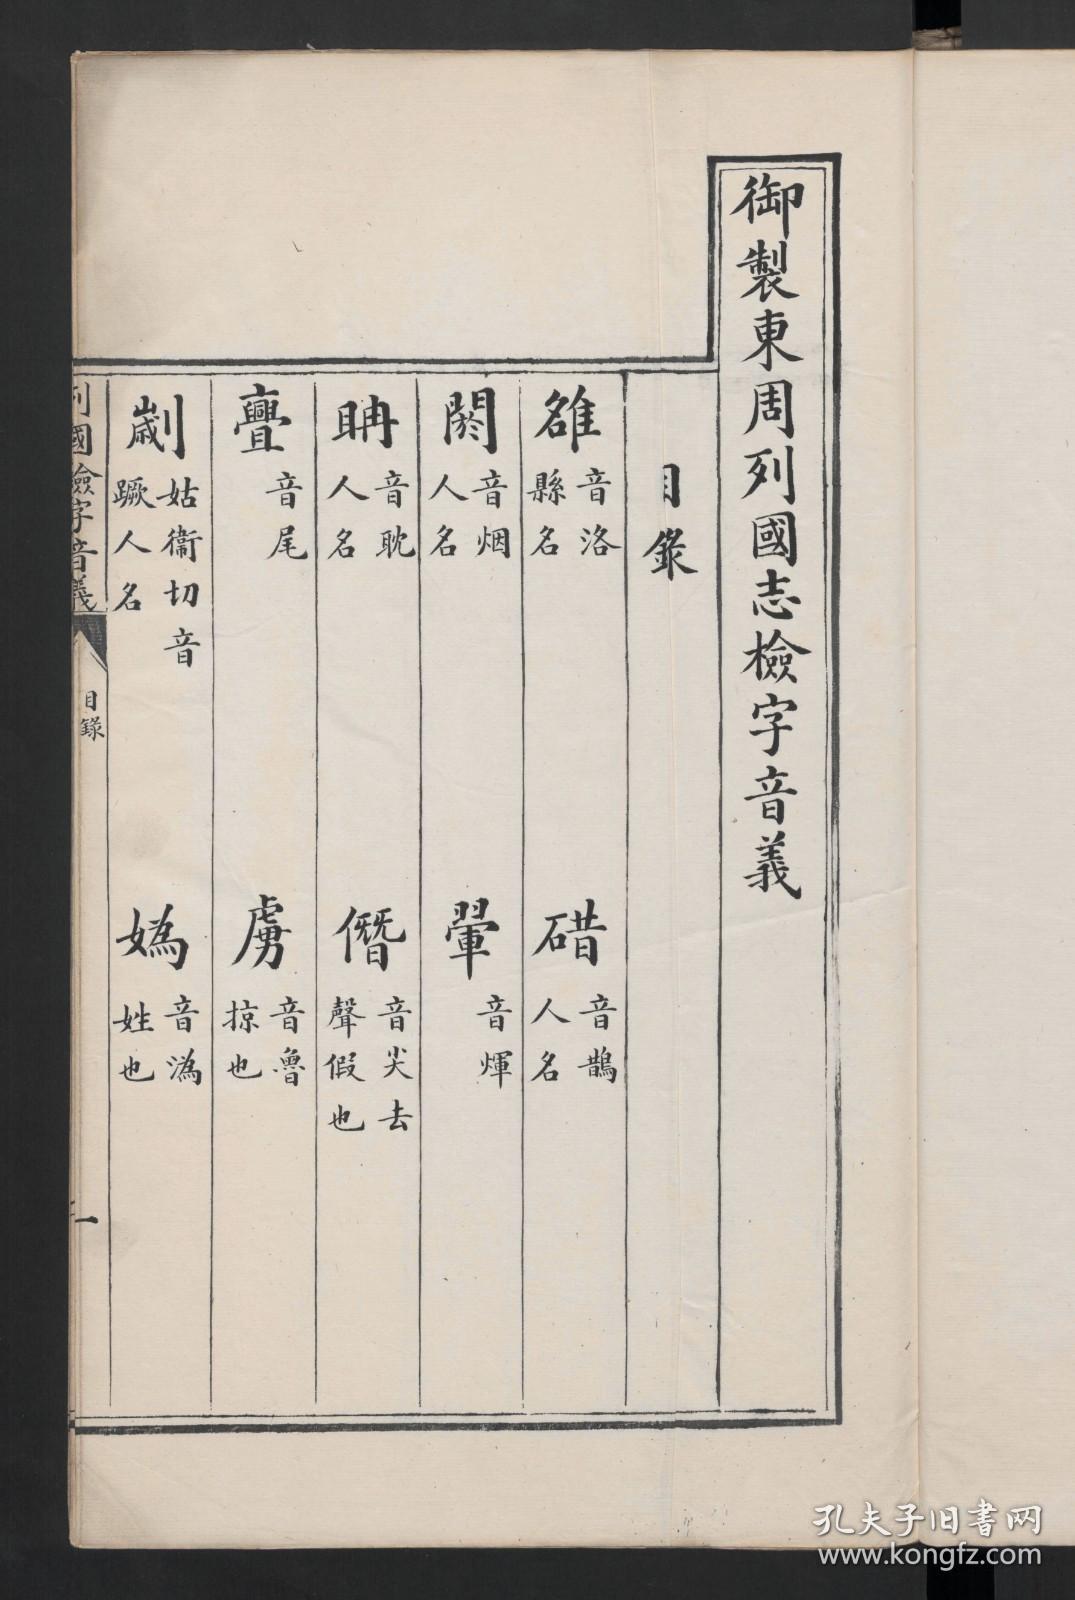 御製東周列國志檢字音義
目錄
雒 音洛 縣名
碏 音鵲 人名
閼 音烟 人名
翬 音煇
聃 音耽 人名
僭 音尖去聲 假也
亹 音尾
虜 音魯 掠也
劌 姑衛切 音蹶 人名
媯 音溈 姓也
列國檢字音義
目錄
一
孔夫子旧书网
www.kongfz.com